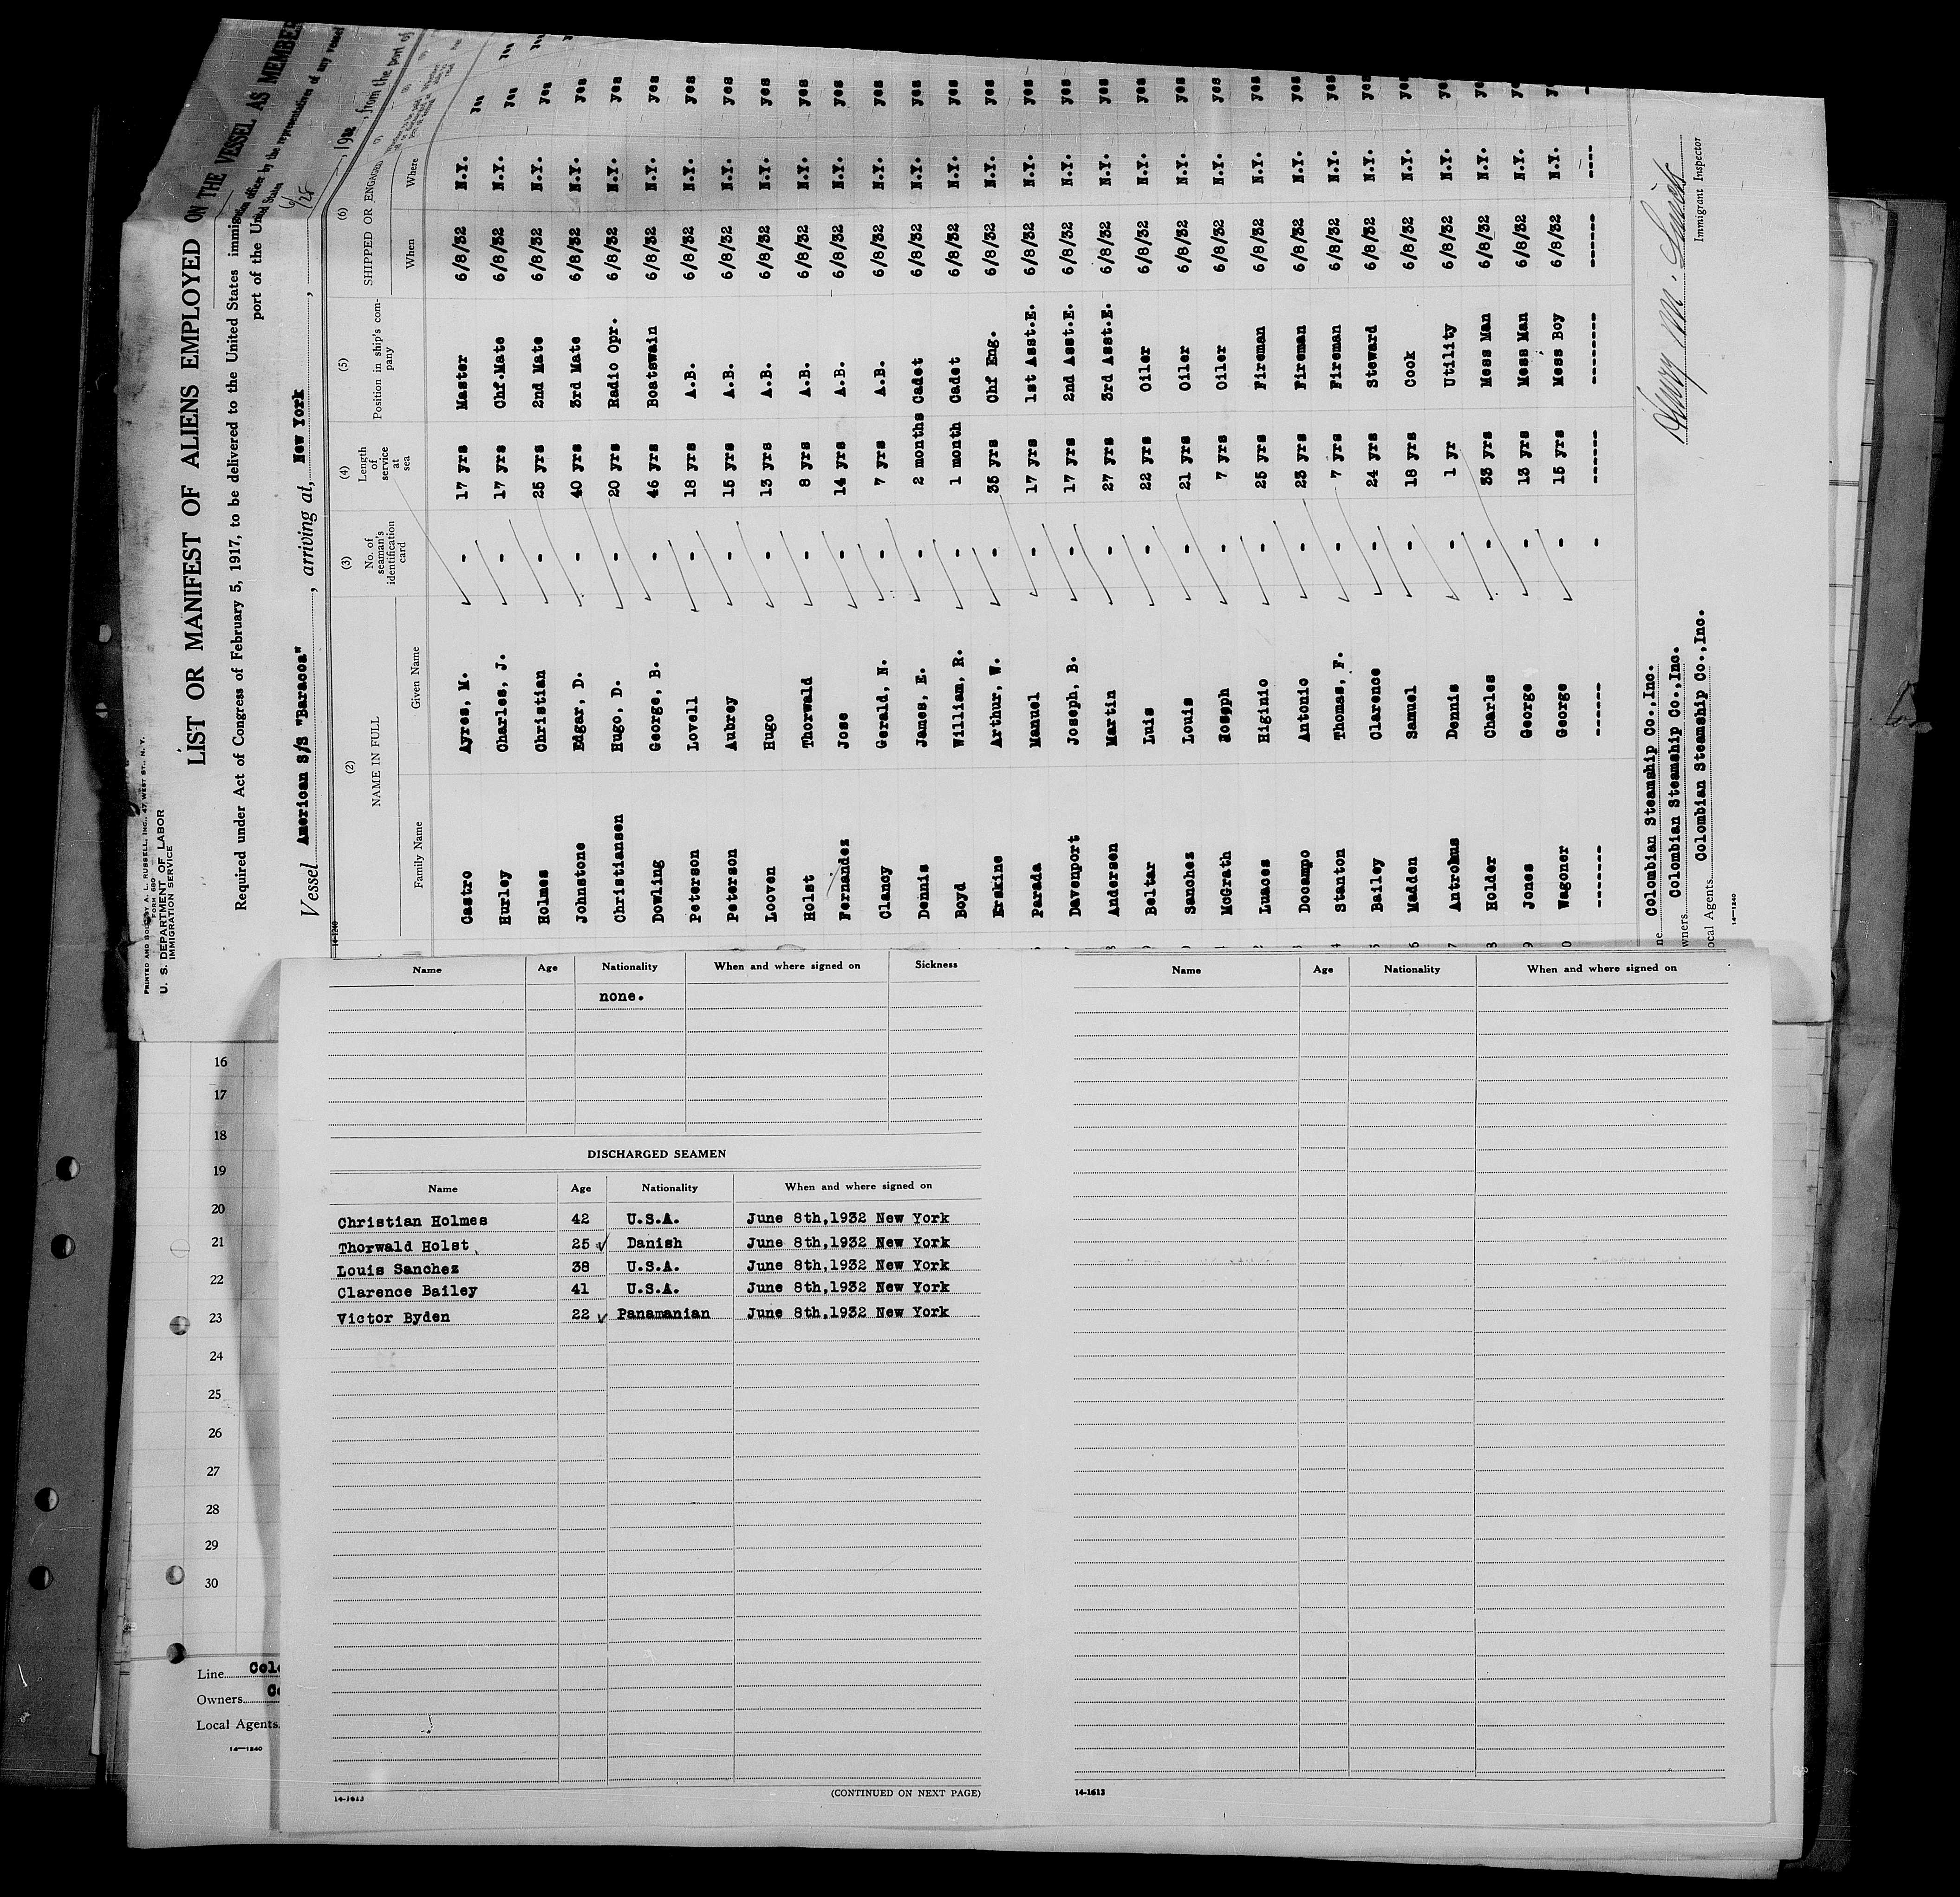 PRINTED AND SOLD BY A. L. RUSSELL, INC., 47 WEST ST., N. Y.
FORM 680
U. S. DEPARTMENT OF LABOR
IMMIGRATION SERVICE
LIST OR MANIFEST OF ALIENS EMPLOYED ON THE VESSEL AS MEMBER
Required under Act of Congress of February 5, 1917, to be delivered to the United States immigration officer by the representatives of any vessel
port of the United States
6/28
Vessel American S/S "Baracoa", arriving at, New York, , 19 , from the port of
14-1240
(2) (3) (4) (5) (6)
NAME IN FULL No. of seaman's identification card Length of service at sea Position in ship's company SHIPPED OR ENGAGED
Family Name Given Name When Where
Castro Ayres, M. - 17 yrs Master 6/8/32 N.Y. yes
Hurley Charles, J. - 17 yrs Chf.Mate 6/8/32 N.Y. yes
Holmes Christian - 25 yrs 2nd Mate 6/8/32 N.Y. yes
Johnstone Edgar, D. - 40 yrs 3rd Mate 6/8/32 N.Y. yes
Christiansen Hugo, D. - 20 yrs Radio Opr. 6/8/32 N.Y. yes
Dowling George, B. - 46 yrs Boatswain 6/8/32 N.Y. yes
Peterson Lovell - 18 yrs A.B. 6/8/32 N.Y. yes
Peterson Aubrey - 15 yrs A.B. 6/8/32 N.Y. yes
Looven Hugo - 13 yrs A.B. 6/8/32 N.Y. yes
Holst Thorwald - 8 yrs A.B. 6/8/32 N.Y. yes
Fernandez Jose - 14 yrs A.B. 6/8/32 N.Y. yes
Clancy Gerald, N. - 7 yrs A.B. 6/8/32 N.Y. yes
Dennis James, E. - 2 months Cadet 6/8/32 N.Y. yes
Boyd William, R. - 1 month Cadet 6/8/32 N.Y. yes
Erskine Arthur, W. - 35 yrs Chf Eng. 6/8/32 N.Y. yes
Parada Manuel - 17 yrs 1st Asst.E. 6/8/32 N.Y. yes
Davenport Joseph, B. - 17 yrs 2nd Asst.E. 6/8/32 N.Y. yes
Andersen Martin - 27 yrs 3rd Asst.E. 6/8/32 N.Y. yes
Beltar Luis - 22 yrs Oiler 6/8/32 N.Y. yes
Sanchez Louis - 21 yrs Oiler 6/8/32 N.Y. yes
McGrath Joseph - 7 yrs Oiler 6/8/32 N.Y. yes
Luaces Higinio - 25 yrs Fireman 6/8/32 N.Y. yes
Docampo Antonio - 23 yrs Fireman 6/8/32 N.Y. yes
Stanton Thomas, F. - 7 yrs Fireman 6/8/32 N.Y. yes
Bailey Clarence - 24 yrs Steward 6/8/32 N.Y. yes
Madden Samuel - 18 yrs Cook 6/8/32 N.Y. yes
Antrobus Dennis - 1 yr Utility 6/8/32 N.Y. ye
Holder Charles - 33 yrs Mess Man 6/8/32 N.Y. y
Jones George - 13 yrs Mess Man 6/8/32 N.Y. y
Wagoner George - 15 yrs Mess Boy 6/8/32 N.Y. y
------ ------ - ------ -------- ------ ----
ne Colombian Steamship Co.,Inc.
wners Colombian Steamship Co.,Inc.
ocal Agents Colombian Steamship Co.,Inc.
14-1240
Immigrant Inspector
Name Age Nationality When and where signed on Sickness
none.
DISCHARGED SEAMEN
Name Age Nationality When and where signed on
Christian Holmes 42 U.S.A. June 8th,1932 New York
Thorwald Holst 25 Danish June 8th,1932 New York
Louis Sanchez 38 U.S.A. June 8th,1932 New York
Clarence Bailey 41 U.S.A. June 8th,1932 New York
Victor Byden 22 Panamanian June 8th,1932 New York
(CONTINUED ON NEXT PAGE)
14-1613
Name Age Nationality When and where signed on
14-1613
16
17
18
19
20
21
22
23
24
25
26
27
28
29
30
Line Colo
Owners Co
Local Agents
14-1240